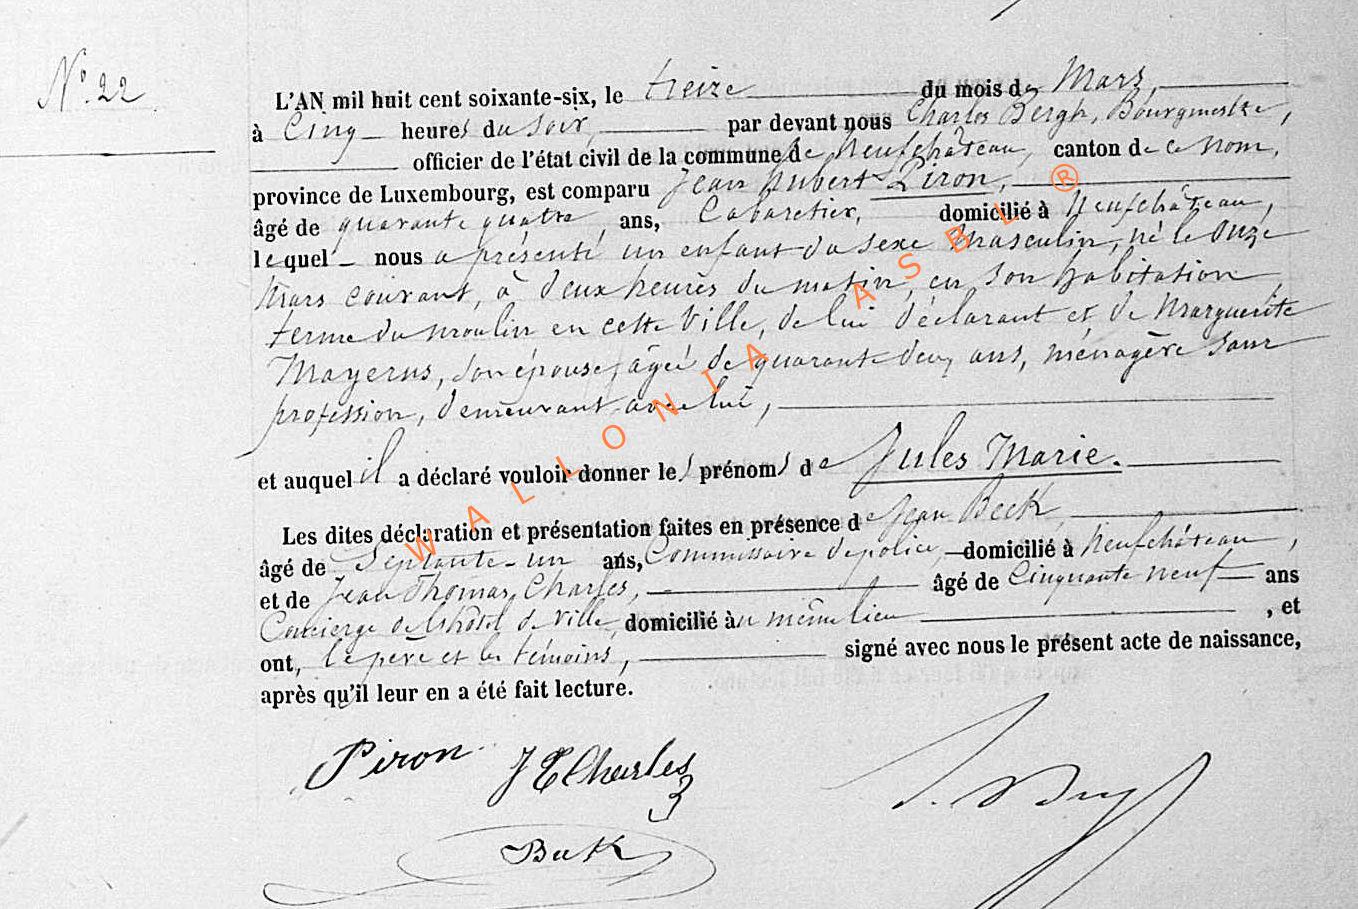 N° 22
L'AN mil huit cent soixante-six, le treize du mois de Mars,
à Cinq heures du soir, par devant nous Charles Bergh, Bourgmestre,
officier de l'état civil de la commune de Neufchâteau, canton de ce nom,
province de Luxembourg, est comparu Jean Hubert Piron,
âgé de quarante quatre ans, Cabaretier, domicilié à Neufchâteau,
lequel nous a présenté un enfant du sexe Masculin, né le Onze
Mars courant, à deux heures du matin, en son habitation
ferme du moulin en cette Ville, de lui déclarant et de Marguerite
Mayerus, son épouse, âgée de quarante deux ans, ménagère sans
profession, demeurant avec lui,
et auquel il a déclaré vouloir donner les prénoms de Jules Marie.
Les dites déclaration et présentation faites en présence de Jean Beck,
âgé de Septante-un ans, Commissaire de police, domicilié à Neufchâteau,
et de Jean Thomas Charles, âgé de Cinquante neuf ans
Concierge de l'hôtel de Ville, domicilié au même lieu, et
ont, le père et les témoins, signé avec nous le présent acte de naissance,
après qu'il leur en a été fait lecture.
Piron J T Charles
Beck
WALLONIA ASBL ®